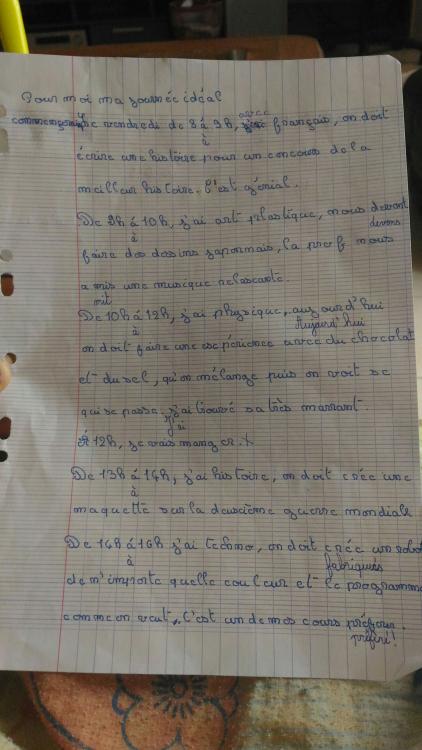 Pour moi ma journée idéal
commence le vendredi de 8 á 9h, avec français, on doit
à
écrire une histoire pour un concours de la
meilleur histoire. C'est génial.
De 9h á 10h, j'ai art plastique, nous devont
à devons
faire des dessins japonais, la prof nous
a mis une musique relaxante.
mit
De 10h á 12h, j'ai physique, aujourd'hui
à Aujourd'hui
on doit faire une expérience avec du chocolat
et du sel, qu'on mélange puis on voit se
qui se passe. j'ai trouvé sa très marrant
J'ai
Á 12h, je vais manger.
De 13h á 14h, j'ai histoire, on doit crée une
à
maquette sur la deuxième guerre mondiale
De 14h á 16h j'ai techno, on doit crée un robot
à fabriquer
de n'importe quelle couleur et le programme
comme on veut, C'est un de mes cours
préféré!